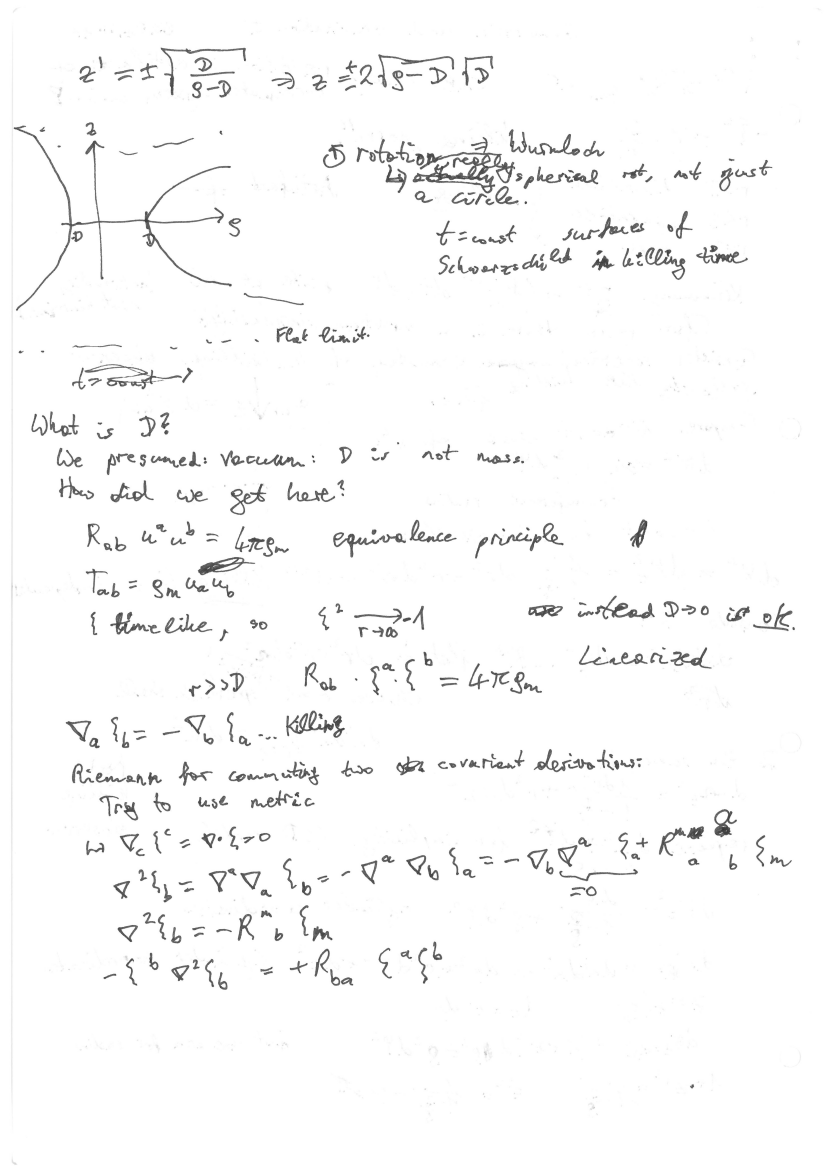 z' = ±√(D/(ρ-D)) ⇒ z = ±2√(ρ-D) √D
z
ρ
-D
D
rotation ⇒ Wurmloch
↳ spherical rot, not just
a circle.
t = const surfaces of
Schwarzschild in killing time
Flat limit.
t = const
What is D?
We presumed: Vacuum: D is not mass.
How did we get here?
R_ab u^a u^b = 4πρ_m equivalence principle
T_ab = ρ_m u_a u_b
ξ timelike, so ξ² →_{r→∞} -1 instead D→0 is ok.
Linearized
r>>D R_ab · ξ^a · ξ^b = 4πρ_m
∇_a ξ_b = -∇_b ξ_a ... Killing
Riemann for commuting two covariant derivations:
Try to use metric
↳ ∇_c ξ^c = ∇·ξ = 0
∇²ξ_b = ∇^a ∇_a ξ_b = -∇^a ∇_b ξ_a = -∇_b ∇^a ξ_a + R^m_a^a_b ξ_m
=0
∇²ξ_b = -R^m_b ξ_m
-ξ^b ∇²ξ_b = +R_ba ξ^a ξ^b